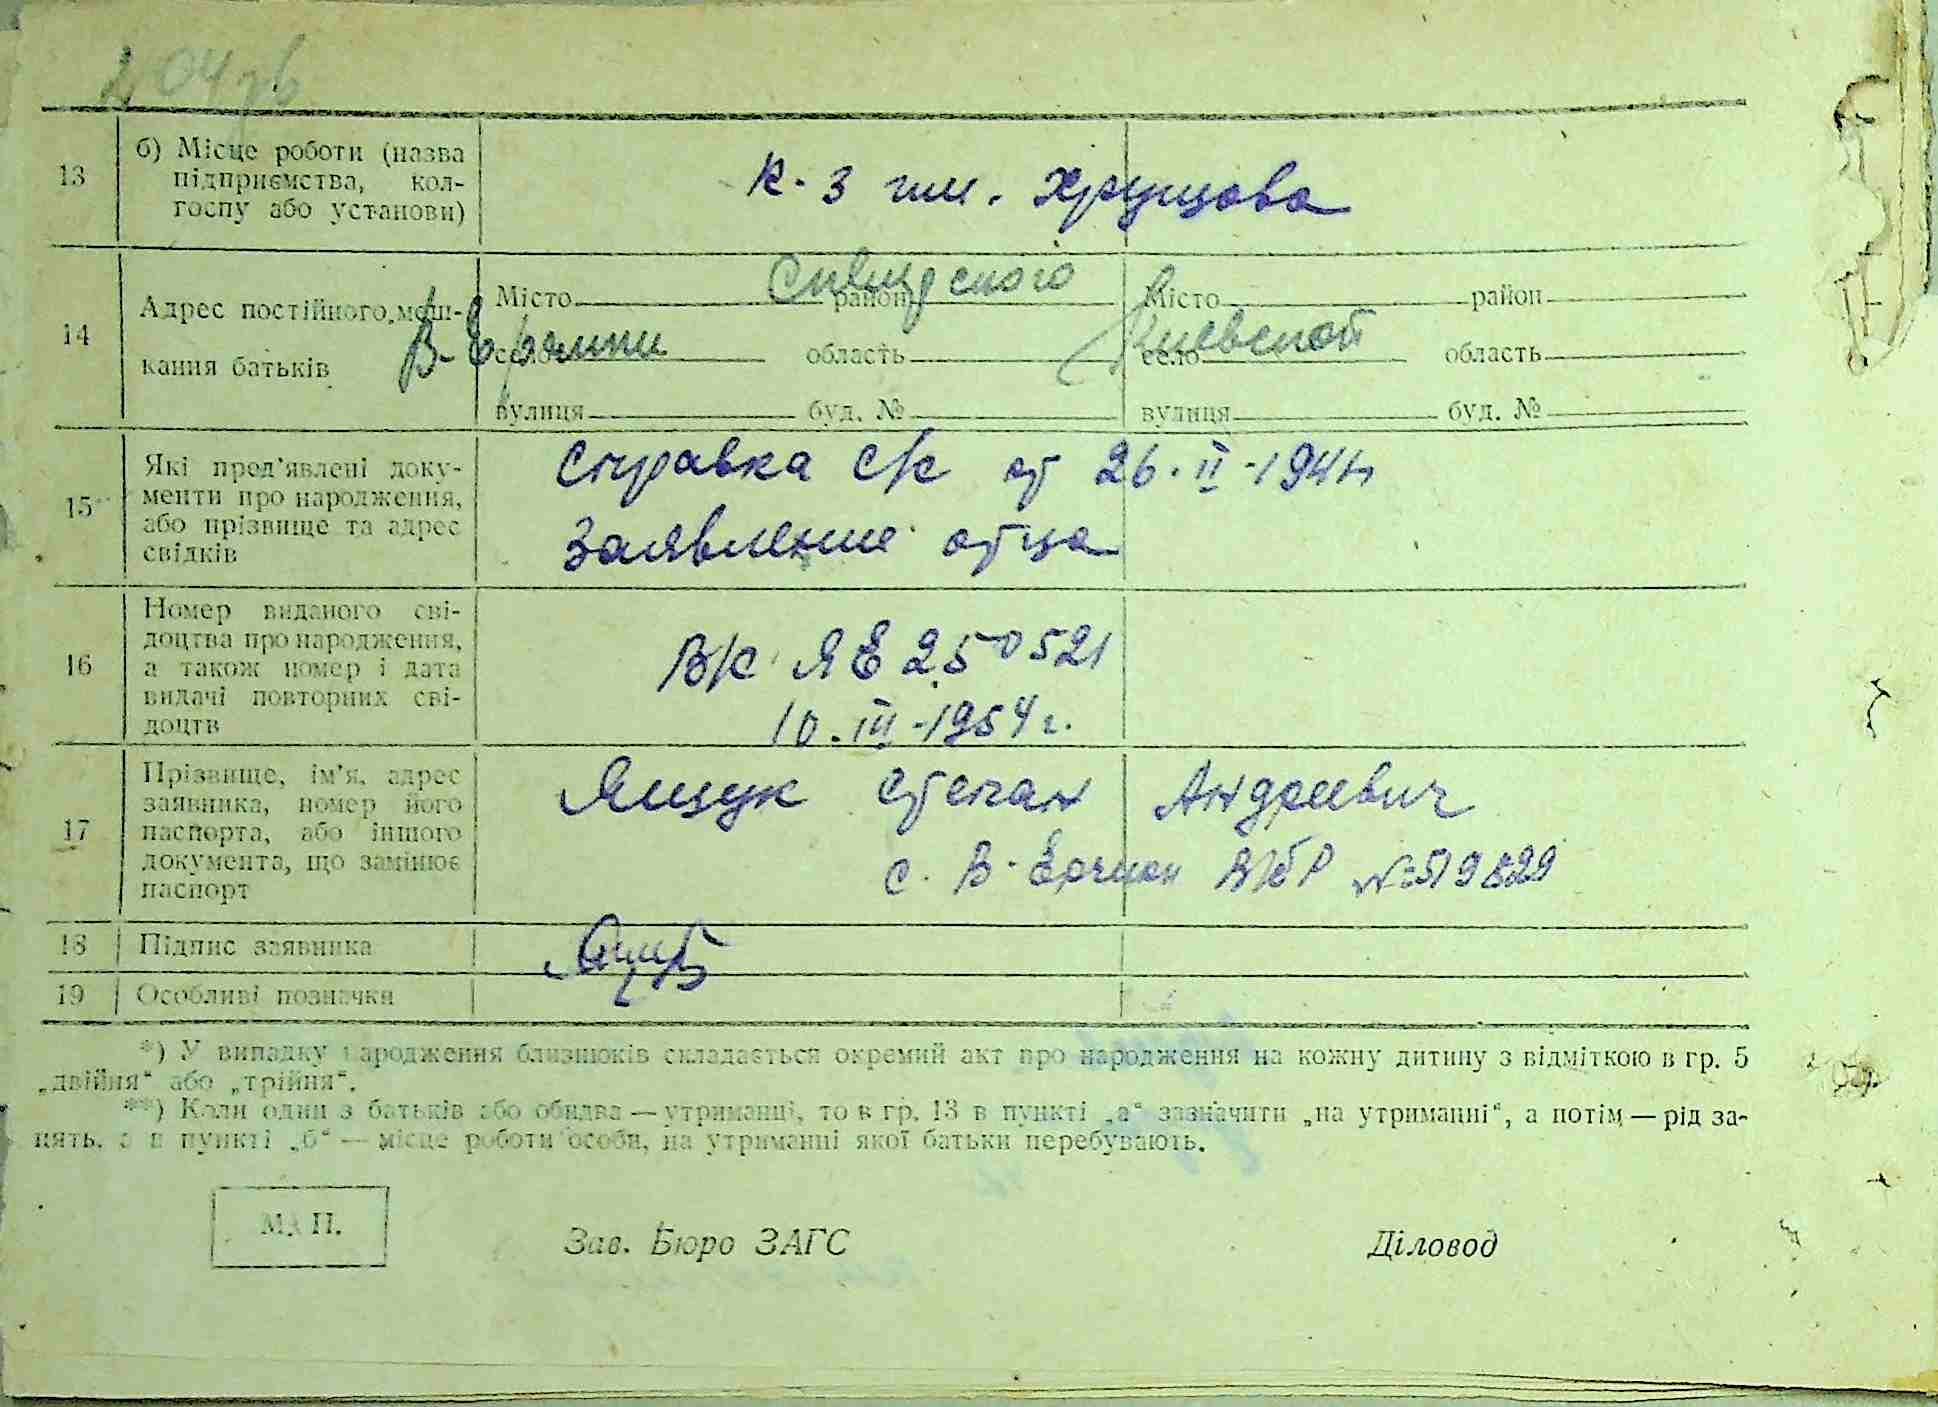 204зв
13
б) Місце роботи (назва
підприємства, кол-
госпу або установи)
к-з им. Хрущова
14
Адрес постійного меш-
кання батьків
Місто район
Сквирского
В-Ерчики
село область
вулиця буд. №
Місто район
Киевской
село область
вулиця буд. №
15
Які пред'явлені доку-
менти про народження,
або прізвище та адрес
свідків
Справка с/с от 26.II-1944
Заявление отца
16
Номер виданого сві-
доцтва про народження,
а також номер і дата
видачі повторних сві-
доцтв
ЯЕ 250521
10.III-1954 г.
17
Прізвище, ім'я, адрес
заявника, номер його
паспорта, або іншого
документа, що замінює
паспорт
Ящук Степан Андреевич
с. В-Ерчики №519829
18
Підпис заявника
19
Особливі позначки
*) У випадку народження близнюків складається окремий акт про народження на кожну дитину з відміткою в гр. 5
„двійня“ або „трійня“.
**) Коли один з батьків або обидва — утриманці, то в гр. 13 в пункті „а“ зазначити „на утриманні“, а потім — рід за-
нять, а в пункті „б“ — місце роботи особи, на утриманні якої батьки перебувають.
М. П.
Зав. Бюро ЗАГС
Діловод